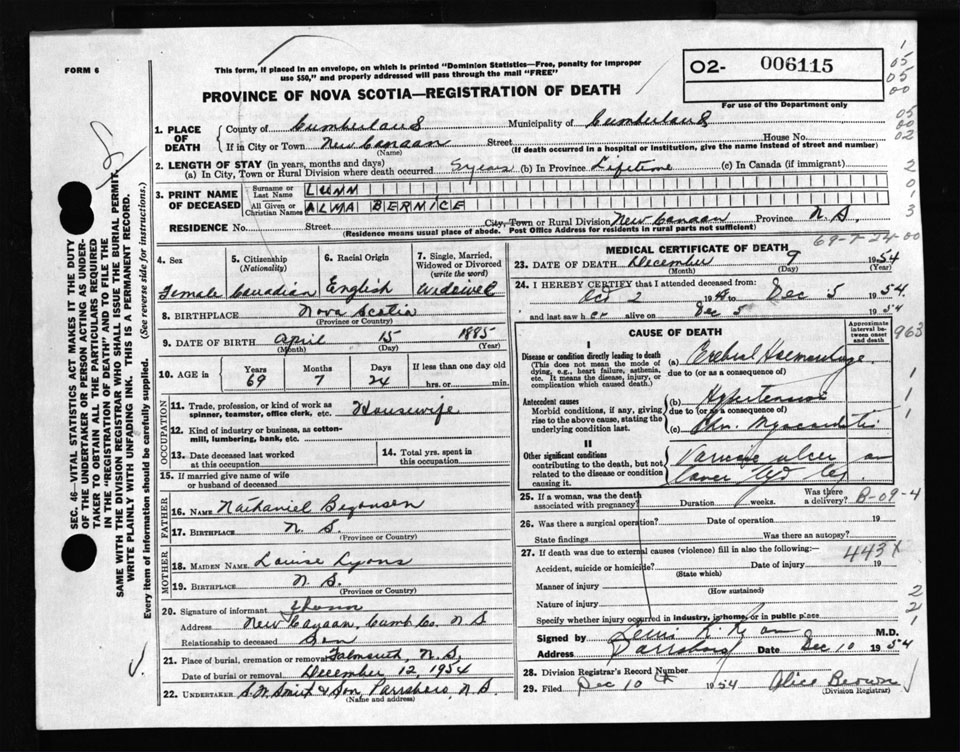 FORM 6
This form, if placed in an envelope, on which is printed "Dominion Statistics—Free, penalty for improper
use $50," and properly addressed will pass through the mail "FREE"
O2- 006115
For use of the Department only
PROVINCE OF NOVA SCOTIA—REGISTRATION OF DEATH
1. PLACE OF DEATH { County of Cumberland Municipality of Cumberland
If in City or Town New Canaan Street House No.
(Name) (If death occurred in a hospital or institution, give the name instead of street and number)
2. LENGTH OF STAY (in years, months and days)
(a) In City, Town or Rural Division where death occurred 5 years (b) In Province Lifetime (c) In Canada (if immigrant)
3. PRINT NAME OF DECEASED { Surname or Last Name LUNN
All Given or Christian Names ALMA BERNICE
RESIDENCE No. Street City, Town or Rural Division New Canaan Province N.S.
(Residence means usual place of abode. Post Office Address for residents in rural parts not sufficient)
69-7-24-00
4. Sex Female
5. Citizenship (Nationality) Canadian
6. Racial Origin English
7. Single, Married, Widowed or Divorced (write the word)
8. BIRTHPLACE Nova Scotia
(Province or Country)
9. DATE OF BIRTH April 15 1885
(Month) (Day) (Year)
10. AGE in Years 69 Months 7 Days 24 If less than one day old hrs. or min.
OCCUPATION
11. Trade, profession, or kind of work as spinner, teamster, office clerk, etc. Housewife
12. Kind of industry or business, as cotton-mill, lumbering, bank, etc.
13. Date deceased last worked at this occupation
14. Total yrs. spent in this occupation
15. If married give name of wife or husband of deceased
FATHER
16. NAME Nathaniel
17. BIRTHPLACE N. S
(Province or Country)
MOTHER
18. MAIDEN NAME Louise Lyons
19. BIRTHPLACE N. S.
(Province or Country)
20. Signature of informant
Address New Canaan, Cumb. Co. N S
Relationship to deceased Son
21. Place of burial, cremation or removal Falmouth, N.S.
Date of burial or removal December 12, 1954
22. UNDERTAKER & Son, Parrsboro, N.S.
(Name and address)
MEDICAL CERTIFICATE OF DEATH
23. DATE OF DEATH December 9 1954
(Month) (Day) (Year)
24. I HEREBY CERTIFY that I attended deceased from:
Oct 2 19 to Dec 5 1954.
and last saw her alive on Dec 5 1954
CAUSE OF DEATH
Approximate interval between onset and death
963
I
Disease or condition directly leading to death
(This does not mean the mode of dying, e.g., heart failure, asthenia, etc. It means the disease, injury, or complication which caused death.)
(a) Cerebral Haemorrhage
due to (or as a consequence of)
Antecedent causes
Morbid conditions, if any, giving rise to the above cause, stating the underlying condition last.
(b) Hypertension
due to (or as a consequence of)
(c) Chr. Myocarditis
II
Other significant conditions
contributing to the death, but not related to the disease or condition causing it.
Varicose ulcer on
lower leg
25. If a woman, was the death associated with pregnancy? Duration weeks. Was there a delivery? B-09-4
26. Was there a surgical operation? Date of operation 19
State findings Was there an autopsy?
27. If death was due to external causes (violence) fill in also the following: 443X
Accident, suicide or homicide? Date of injury 19
(State which)
Manner of injury
(How sustained)
Nature of injury
Specify whether injury occurred in industry, in home, or in public place
Signed by M.D.
Address Parrsboro Date Dec 10 1954
28. Division Registrar's Record Number
29. Filed Dec 10 1954 Alice Brown
(Division Registrar)
SEC. 46—VITAL STATISTICS ACT MAKES IT THE DUTY
OF THE UNDERTAKER OR PERSON ACTING AS UNDER-
TAKER TO OBTAIN ALL THE PARTICULARS REQUIRED
IN THE "REGISTRATION OF DEATH" AND TO FILE THE
SAME WITH THE DIVISION REGISTRAR WHO SHALL ISSUE THE BURIAL PERMIT.
WRITE PLAINLY WITH UNFADING INK. THIS IS A PERMANENT RECORD.
Every item of information should be carefully supplied. (See reverse side for instructions.)
1
05
05
00
05
00
02
2
0
1
3
1
1
1
2
2
1